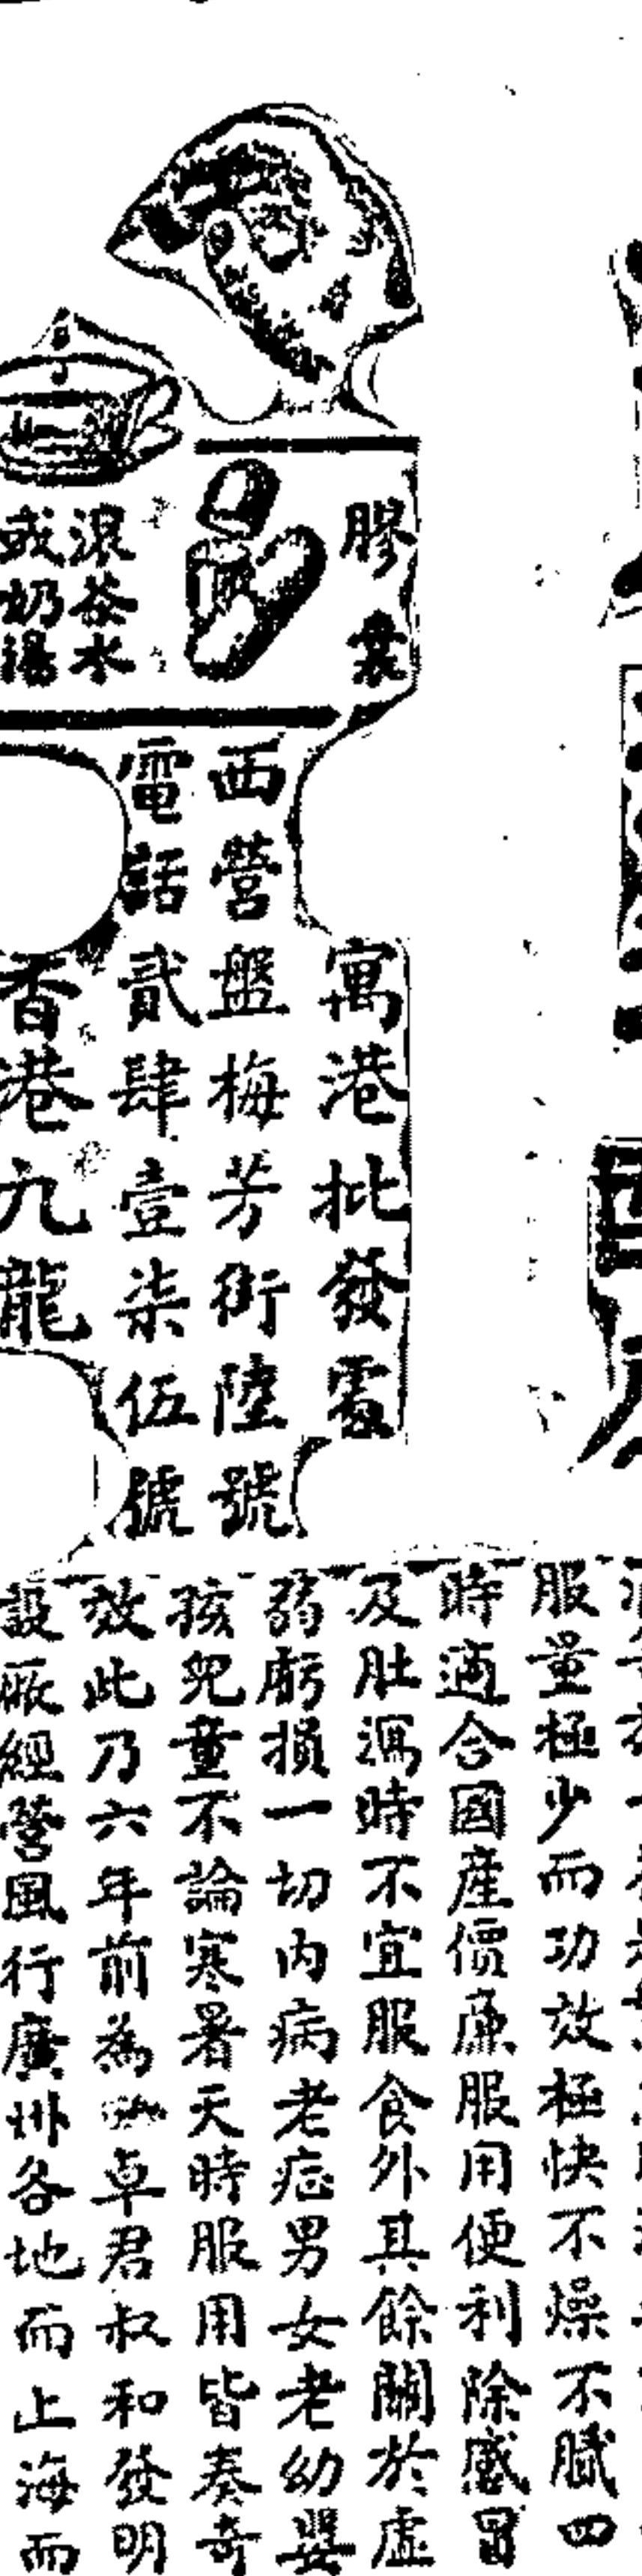 膠囊
滾茶水
或奶湯
寓港批發處
西營盤梅芳街陸號
電話貳肆壹柒伍號
香港九龍
服量極少而功效極快不燥不膩四
時適合國產價廉服用便利除感冒
及肚瀉時不宜服食外其餘關於虛
弱虧損一切內病老症男女老幼嬰
孩兒童不論寒暑天時服用皆奏奇
效此乃六年前為卓君叔和發明
設厰經營風行廣州各地而上海而